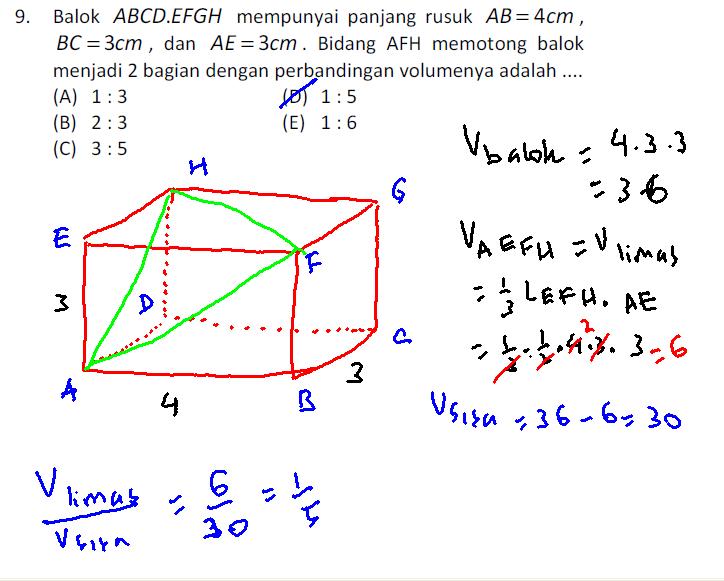 9. Balok ABCD.EFGH mempunyai panjang rusuk AB = 4cm ,
BC = 3cm , dan AE = 3cm . Bidang AFH memotong balok
menjadi 2 bagian dengan perbandingan volumenya adalah ....
(A) 1 : 3 (D) 1 : 5
(B) 2 : 3 (E) 1 : 6
(C) 3 : 5
H
G
E
F
3
D
C
A
B
3
4
V balok = 4.3.3
= 36
V AEFH = V limas
= 1/3 L EFH . AE
= 1/3 . 1/2 . 4 . 3 . 3 = 6
2
V sisa = 36 - 6 = 30
V limas / V sisa = 6/30 = 1/5